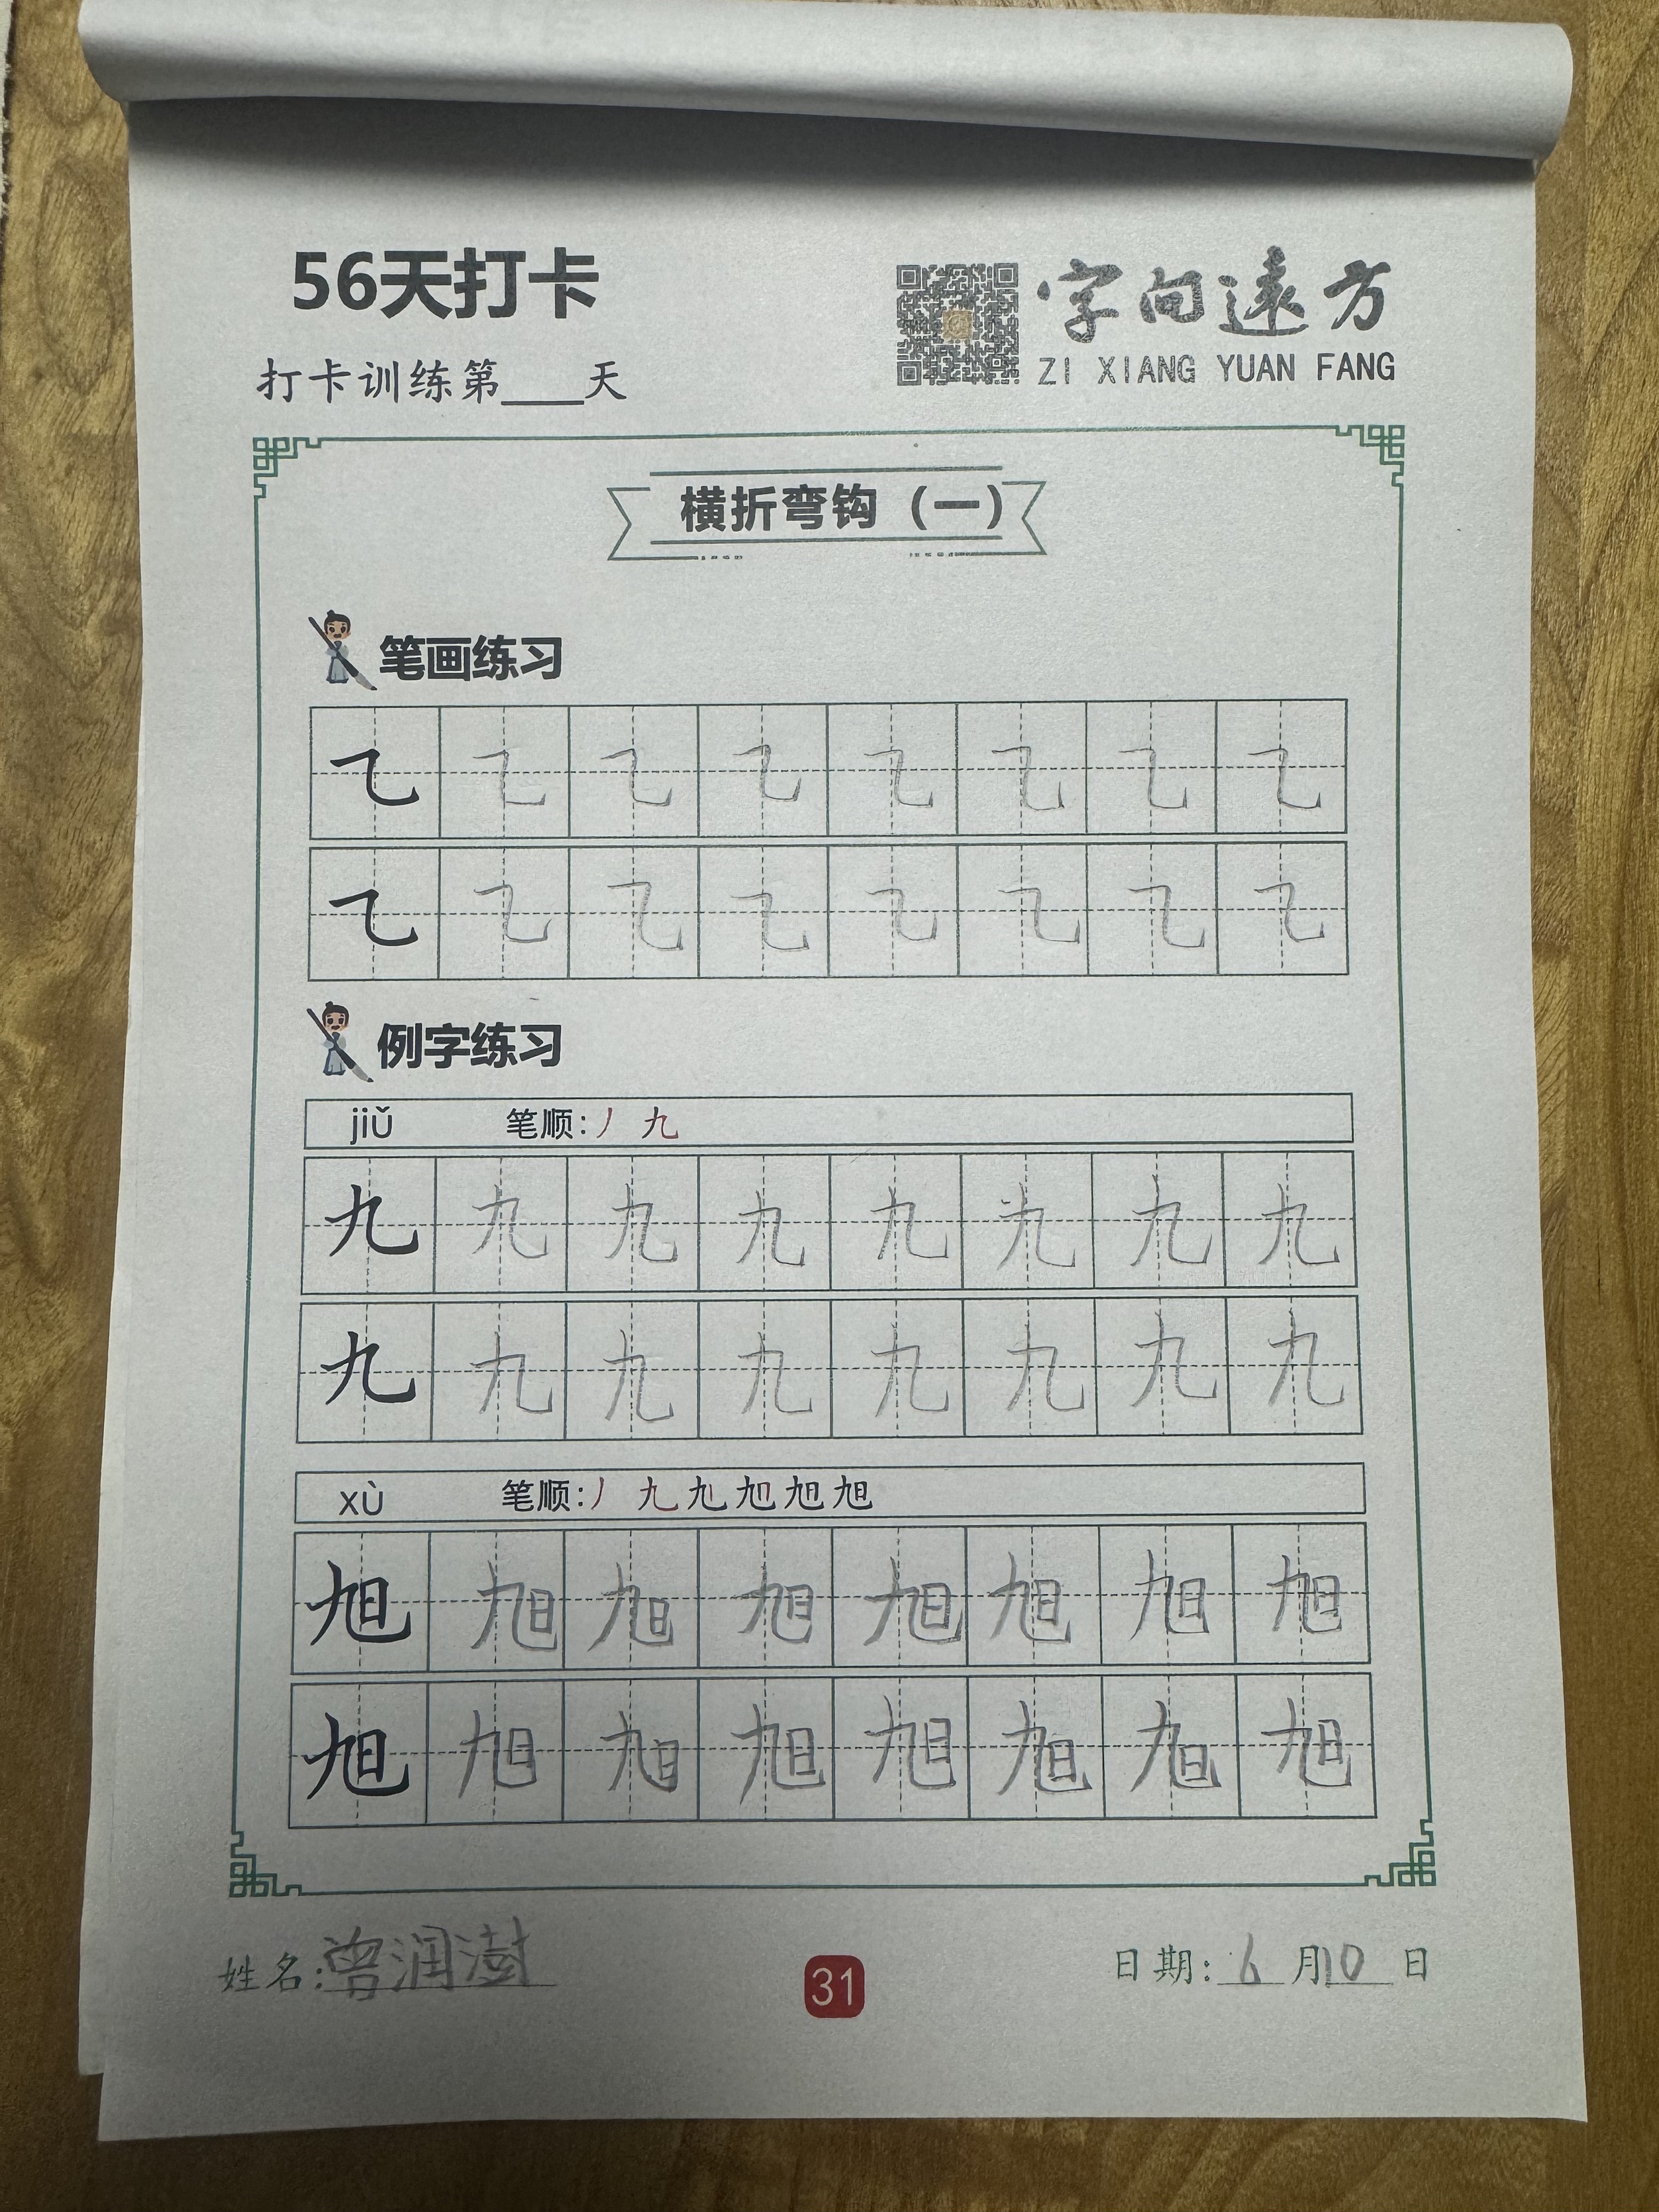 56天打卡
字向遠方
ZI XIANG YUAN FANG
打卡训练第____天
横折弯钩（一）
笔画练习
㇈ ㇈ ㇈ ㇈ ㇈ ㇈ ㇈ ㇈
㇈ ㇈ ㇈ ㇈ ㇈ ㇈ ㇈ ㇈
例字练习
jiǔ 笔顺:丿 九
九 九 九 九 九 九 九 九
九 九 九 九 九 九 九 九
xù 笔顺:丿 九 旭 旭 旭 旭
旭 旭 旭 旭 旭 旭 旭 旭
旭 旭 旭 旭 旭 旭 旭 旭
姓名:曾润澍
31
日期:6月10日